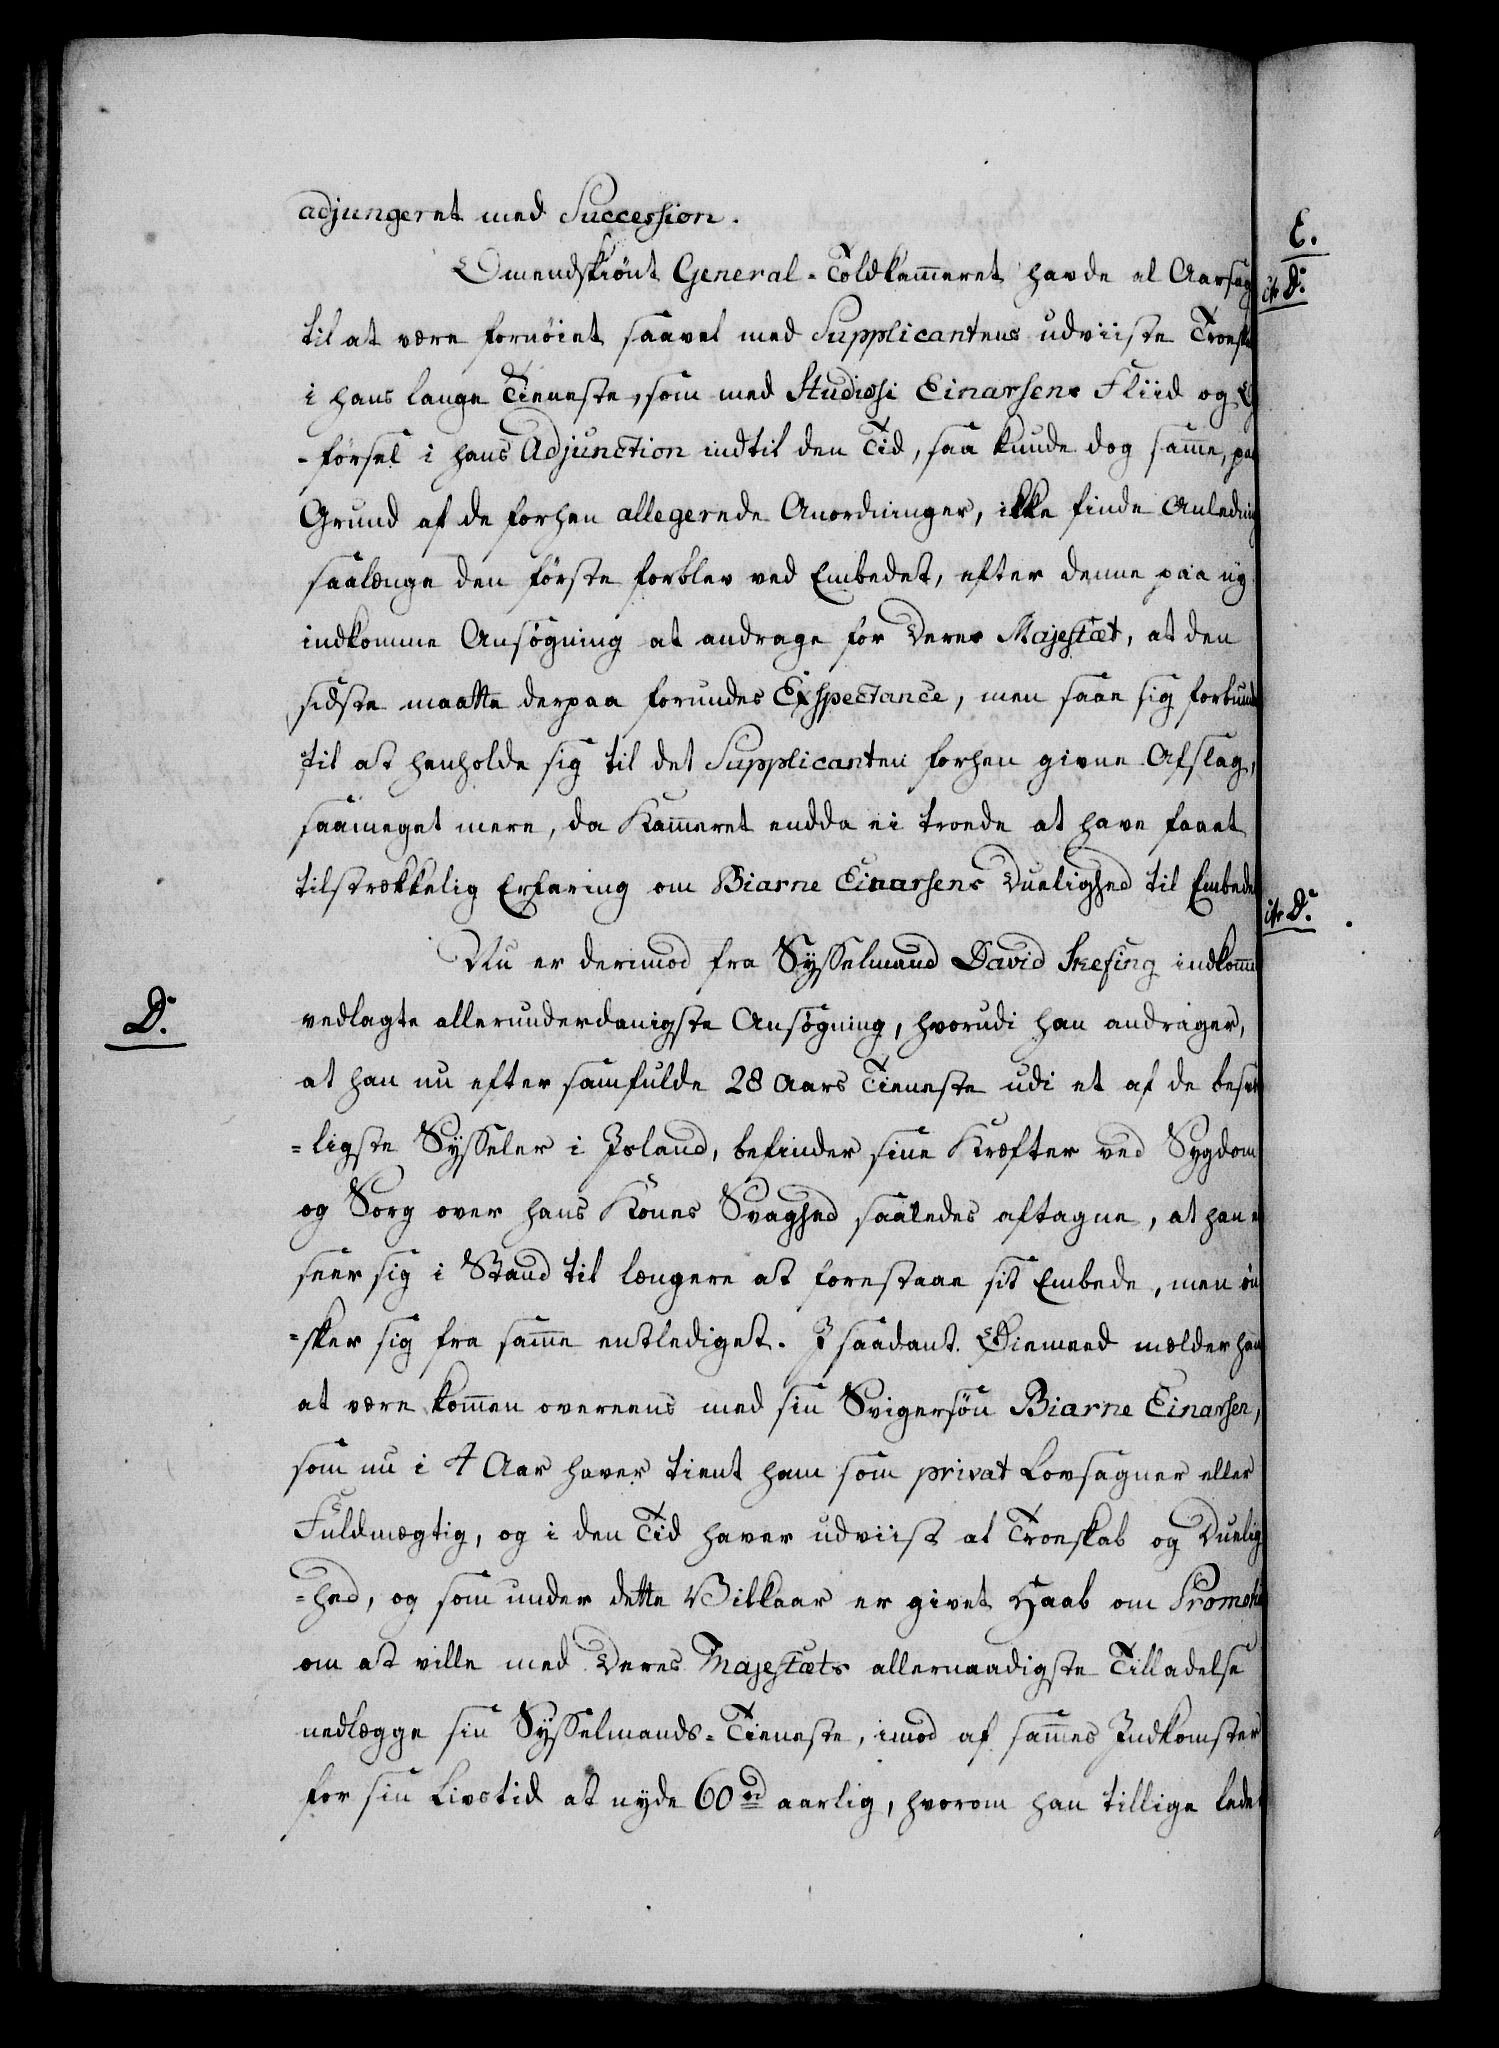 adjungeret med Succession.
Omendskiönt General-Toldkam̅eret havde al Aarsag
til at være fornöiet saavel med Supplicantens udviiste Troeska
i hans lange Tieneste, som med Studiosi Einarsens Fliid og O
-försel i hans Adjunction indtil den Tid, saa kunde dog sam̅e, paa
Grund af de forhen allegerede Anordninger, ikke finde Anledning
saalænge den förste forblev ved Embedet, efter denne paa ny
indkomne Ansögning at andrage for Deres Majestæt, at den
sidste maatte derpaa forundes Exspectance, men saae sig forbunde
til at henholde sig til det Supplicanten forhen givne Afslag,
saameget mere, da Kam̅eret endda ei troede at have faaet
tilstrækkelig Erfaring om Biarne Einarsens Duelighed til Embede
Nu er derimod fra Sysselmand David Skefing indkom̅e
D.
vedlagte allerunderdanigste Ansögning, hvorudi han andrager,
at han nu efter samfulde 28 Aars Tieneste udi et af de besvær
=ligste Sysseler i Island, befinder sine Kræfter ved Sygdom
og Sorg over hans Kones Svaghed saaledes aftagne, at han ei
seer sig i Stand til længere at forestaae sit Embede, men ön
=sker sig fra sam̅e entlediget. I saadant Öiemeed melder han
at være kom̅en overeens med sin Svigersön Biarne Einarsen,
som nu i 4 Aar haver tient ham som privat Lovsagner eller
Fuldmægtig, og i den Tid haver udviist al Troeskab og Duelig
=hed, og som under dette Vilkaar er givet Haab om Promoti
om at ville med Deres Majestæts allernaadigste Tilladelse
nedlægge sin Sysselmands=Tieneste, imod af sam̅es Indkomster
for sin Livstid at nyde 60 rd aarlig, hvorom han tillige bede
E.
itr D.
itr D.